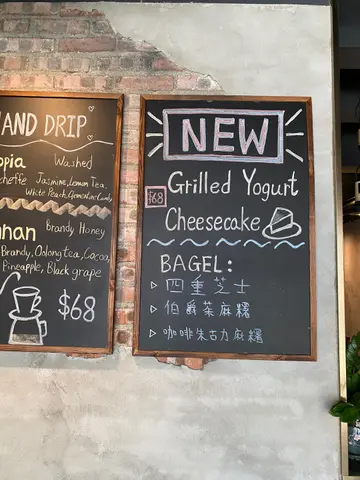 HAND DRIP
opia Washed
cheffe Jasmine, Lemon Tea
White Peach,
nan Brandy Honey
Brandy, Oolong tea, Cocoa,
Pineapple, Black grape
$68
NEW
Grilled Yogurt
$68
Cheesecake
BAGEL:
▷ 四重芝士
▷ 伯爵茶麻糬
▷ 咖啡朱古力麻糬